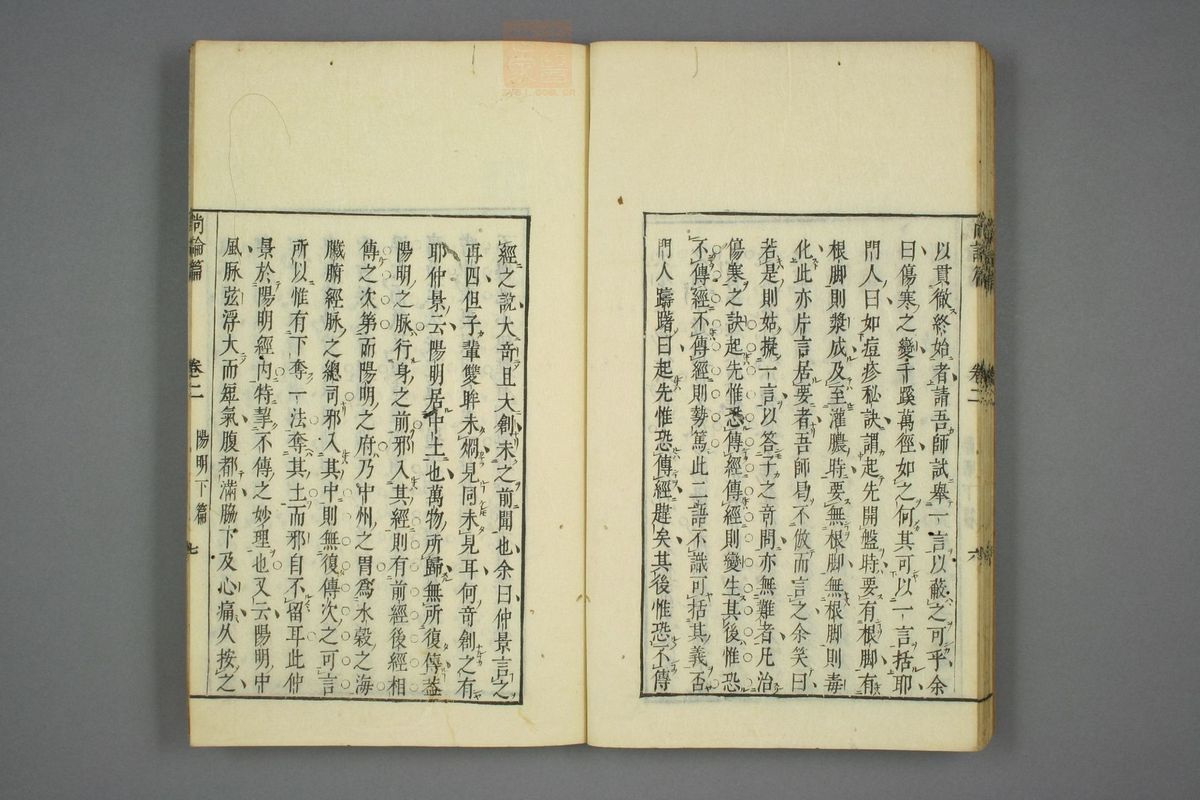 以貫徹終始者請吾師試舉一言以蔽之可乎余
曰傷寒之變千蹊萬徑如之何其可以一言括耶
門人曰如痘疹秘訣謂起先開盤時要有根脚有
根脚則漿成及至灌膿時要無根脚無根脚則毒
化此亦片言居要者吾師曷不倣而言之余笑曰
若是則姑擬一言以答子之竒問亦無難者凡治
傷寒之訣起先惟恐傳經傳經則變生其後惟恐
不傳經不傳經則勢篤此二語不識可括其義否
門人躊躇曰起先惟恐傳經韙矣其後惟恐不傳
尚論篇 卷二 六
經之說大竒且大創未之前聞也余曰仲景言之
再四但子輩雙眸未烱見同未見耳何竒創之有
耶仲景云陽明居中土也萬物所歸無所復傳葢
陽明之脉行身之前邪入其經則有前經後經相
傳之次第而陽明之府乃中州之胃爲水穀之海
臟腑經脉之總司邪入其中則無復傳次之可言
所以惟有下奪一法奪其土而邪自不留耳此仲
景於陽明經内特挈不傳之妙理也又云陽明中
風脉弦浮大而短氣腹都滿脇下及心痛久按之
尚論篇 卷二 陽明下篇 七